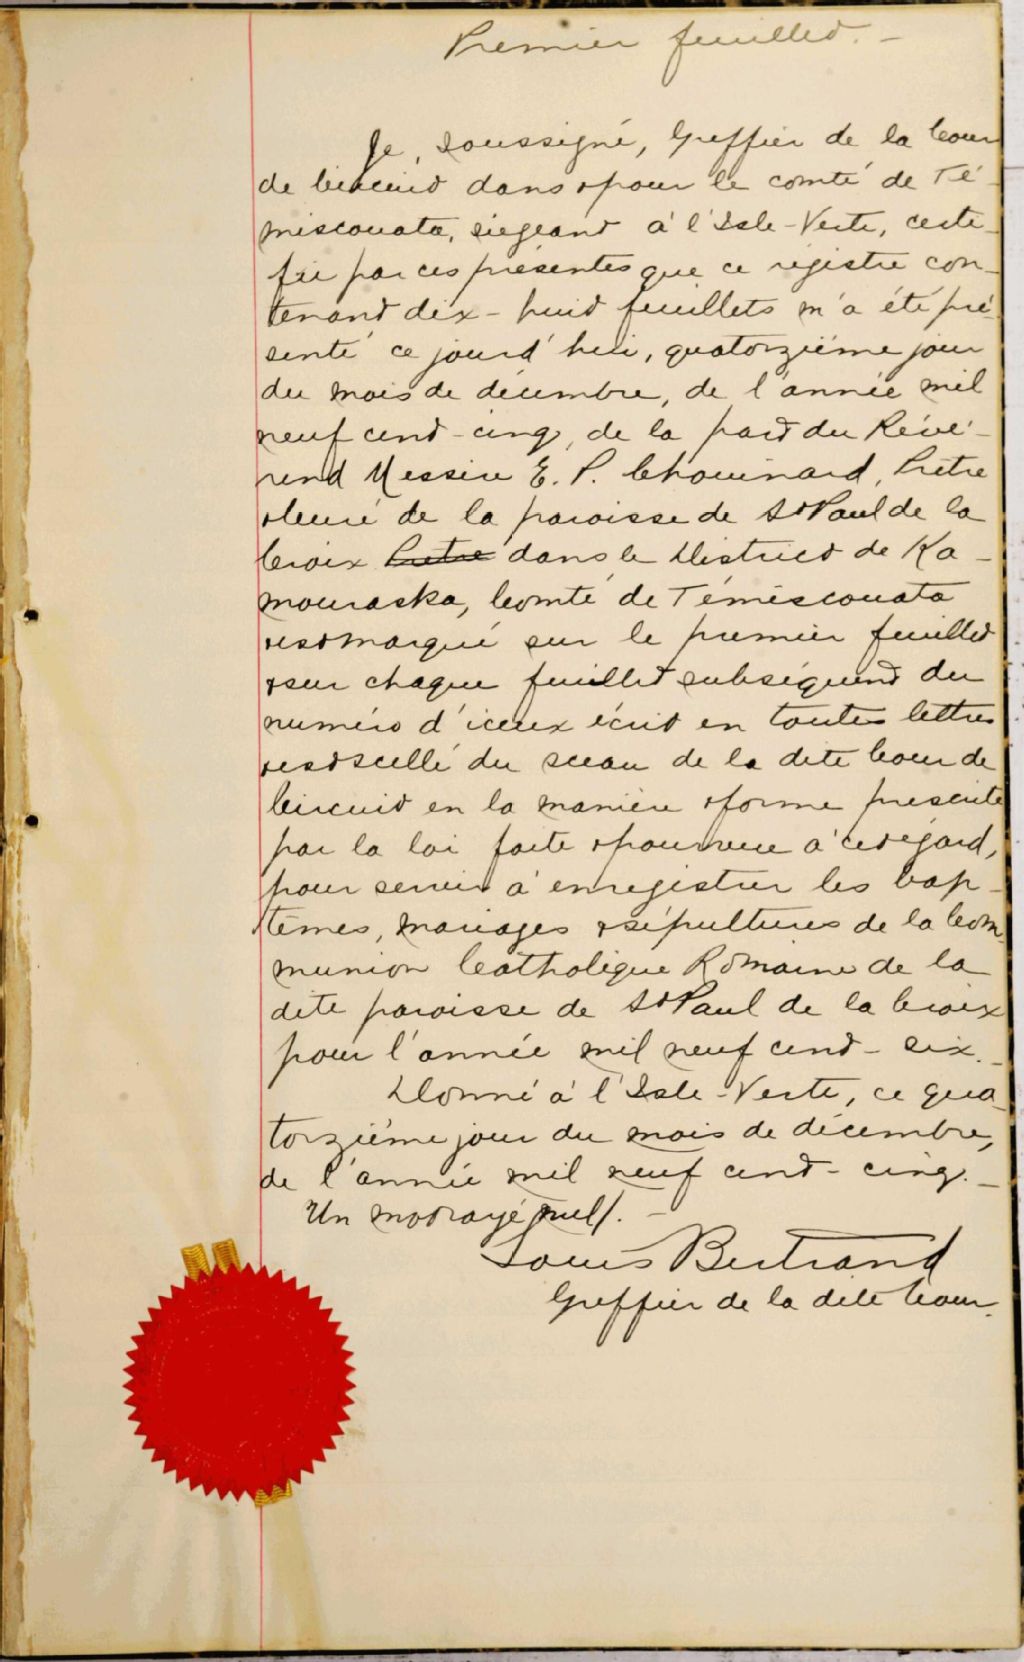 Premier feuillet. -
Je, soussigné, Greffier de la Cour
de Circuit dans & pour le comté de Té-
miscouata, siégeant à l'Isle-Verte, certi-
fie par ces présentes que ce régistre con-
tenant dix-huit feuillets m'a été pré-
senté ce jourd'hui, quatorzième jour
du mois de décembre, de l'année mil
neuf cent-cinq, de la part du Révé-
rend Messire E. P. Chouinard, Prêtre
& Curé de la paroisse de St Paul de la
Croix Prêtre dans le District de Ka-
mouraska, Comté de Témiscouata
& est marqué sur le premier feuillet
& sur chaque feuillet subséquent du
numéro d'iceux écrit en toutes lettres
& est scellé du sceau de la dite Cour de
Circuit en la manière & forme prescrite
par la loi faite & pourvue à cet égard,
pour servir à enregistrer les bap-
têmes, mariages & sépultures de la Com-
munion Catholique Romaine de la
dite paroisse de St Paul de la Croix
pour l'année mil neuf cent-six. -
Donné à l'Isle-Verte, ce qua-
torzième jour du mois de décembre,
de l'année mil neuf cent-cinq. -
Un mot rayé nul/. -
Louis Bertrand
Greffier de la dite Cour.